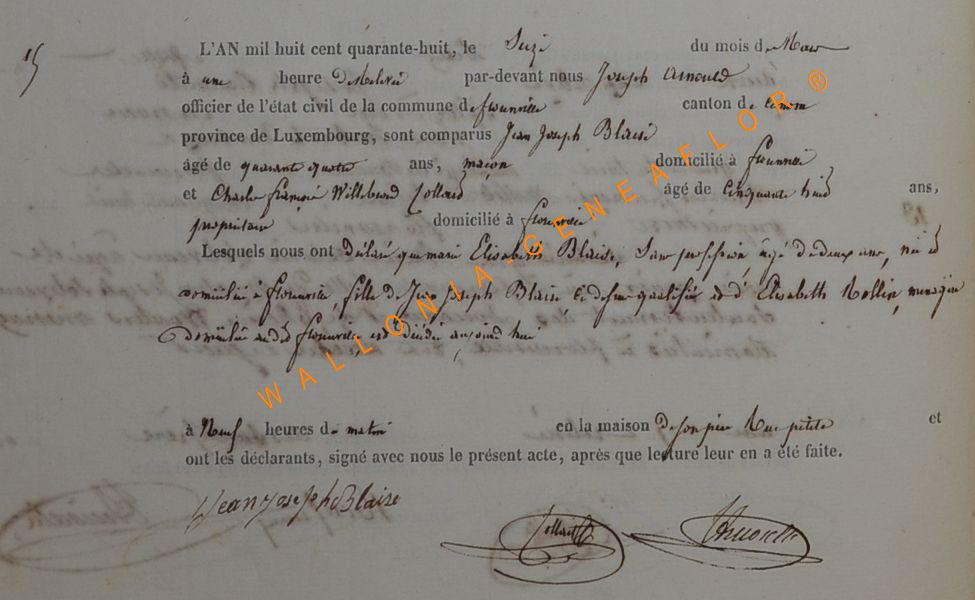 15
L'AN mil huit cent quarante-huit, le Seize du mois de Mars
à une heure de Relevée par-devant nous Joseph Arnould
officier de l'état civil de la commune de florenville canton de
province de Luxembourg, sont comparus Jean Joseph Blaise
âgé de quarante quatre ans, maçon domicilié à florenville
et Charles François Willebrord Collard âgé de Cinquante huit ans,
propriétaire domicilié à florenville
Lesquels nous ont déclaré que marie Elisabeth Blaise, Sans profession âgée de deux ans, née et
domiciliée à florenville, fille de Jean Joseph Blaise ci dessus qualifié et d' Elisabeth Rollin, menagère
Domiciliée audit florenville, est décédée aujourd hui
à Neuf heures du matin en la maison de son père Rue petite et
ont les déclarants, signé avec nous le présent acte, après que lecture leur en a été faite.
Jean Joseph Blaise
Collard
WALLONIA-GENEAFLOR®